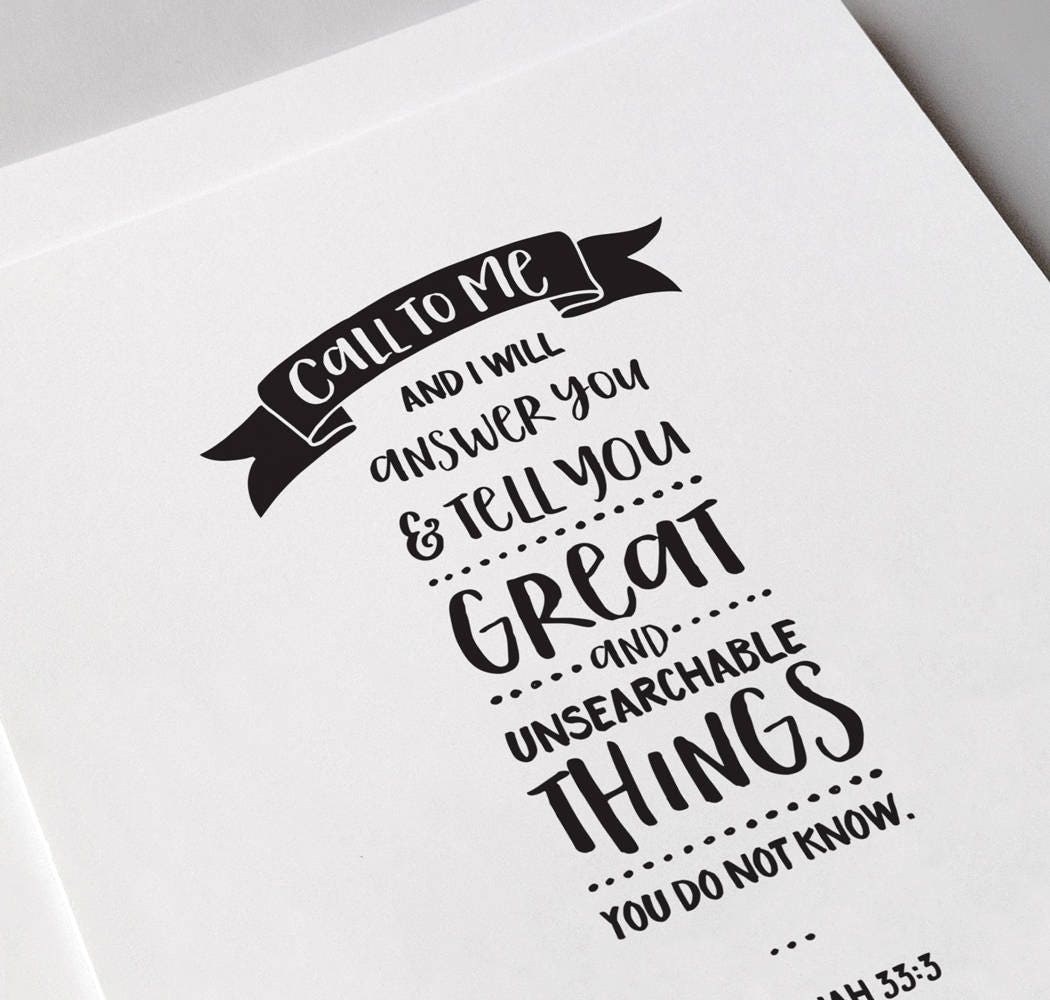 CALL TO ME
AND I WILL
ANSWER YOU
& TELL YOU
GREAT
AND
UNSEARCHABLE
THINGS
YOU DO NOT KNOW.
33:3